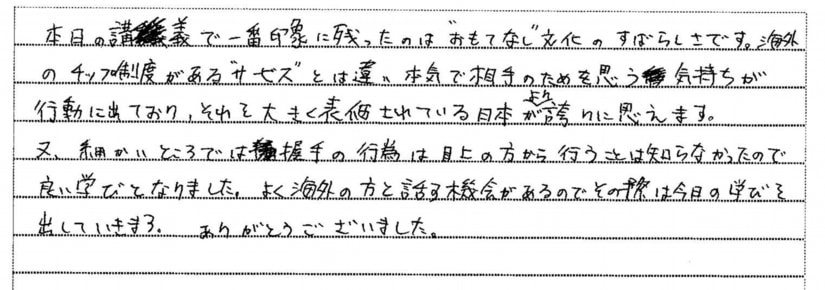 本日の講義で一番印象に残ったのは"おもてなし"文化のすばらしさです。海外
のチップ制度がある"サービス"とは違い本気で相手のためを思う気持ちが
行動に出ており、それを大きく表価されている日本がより誇りに思えます。
又、細かいところでは握手の行為は目上の方から行うことは知らなかったので
良い学びとなりました。よく海外の方と話す機会があるのでその際は今日の学びを
出していきます。ありがとうございました。